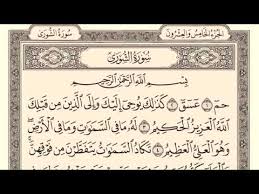 الجزء الخامس والعشرون
سورة الشورى
سُورَةُ الشُّورَىٰ
بِسْمِ ٱللَّهِ ٱلرَّحْمَٰنِ ٱلرَّحِيمِ
حمٓ ١ عٓسٓقٓ ٢ كَذَٰلِكَ يُوحِىٓ إِلَيْكَ وَإِلَى ٱلَّذِينَ مِن قَبْلِكَ
ٱللَّهُ ٱلْعَزِيزُ ٱلْحَكِيمُ ٣ لَهُۥ مَا فِى ٱلسَّمَٰوَٰتِ وَمَا فِى ٱلْأَرْضِ
وَهُوَ ٱلْعَلِىُّ ٱلْعَظِيمُ ٤ تَكَادُ ٱلسَّمَٰوَٰتُ يَتَفَطَّرْنَ مِن فَوْقِهِنَّ